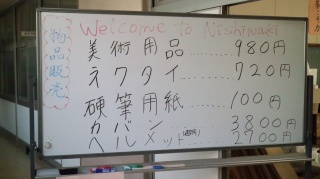 Welcome to Nishiwaki
物品販売
美術用品……980円
ネクタイ……720円
硬筆用紙……100円
カバン 3800円
ヘルメット(通学用) 2700円